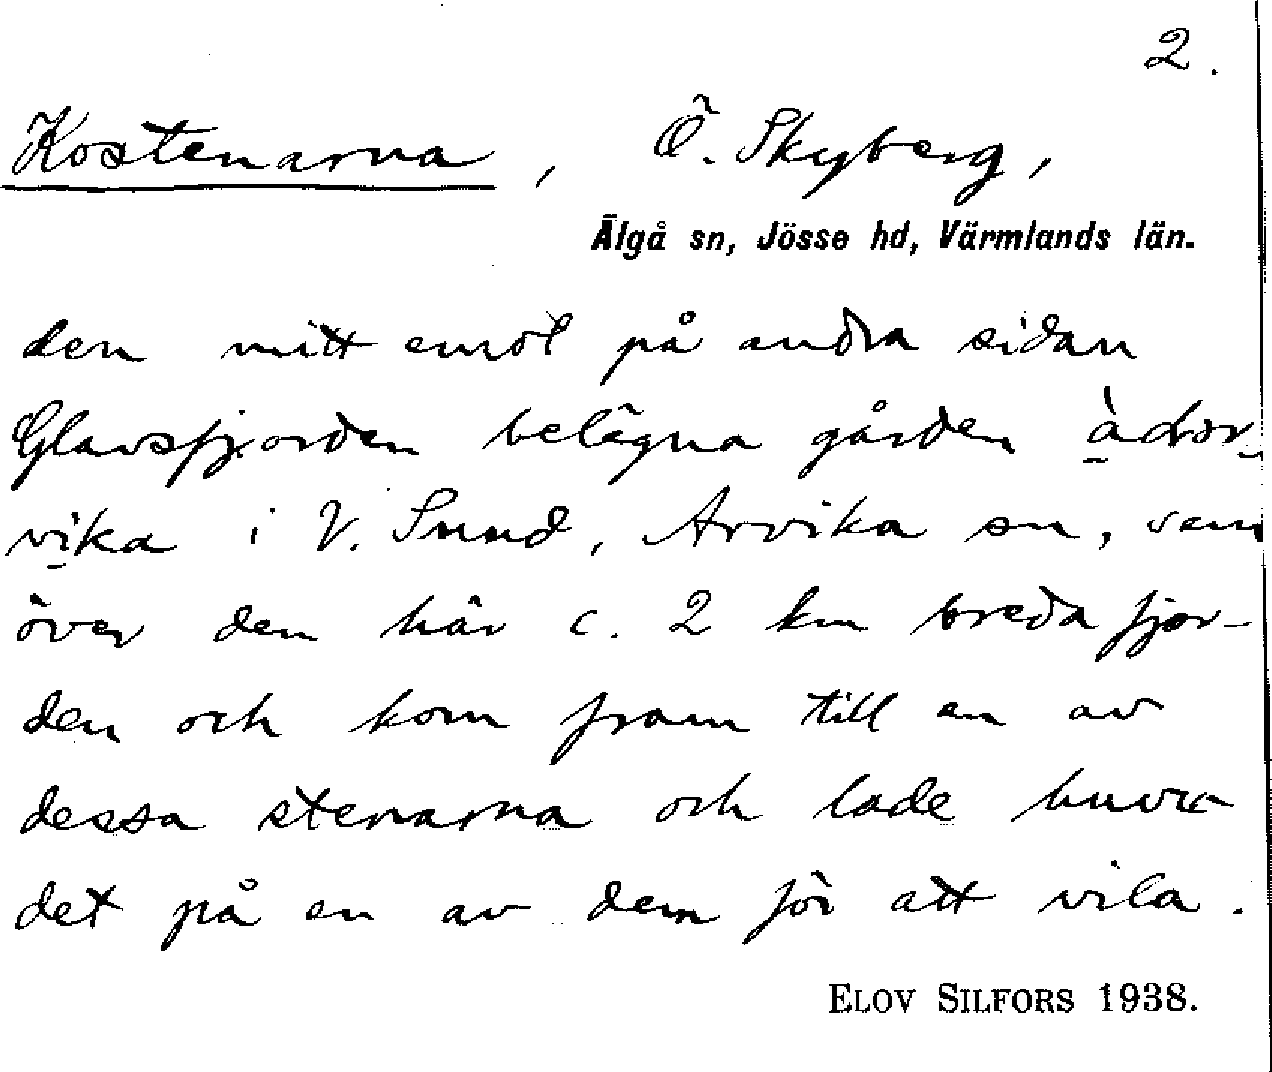 2.
Kostenarna, Ö. Skyberg,
Älgå sn, Jösse hd, Värmlands län.
den mitt emot på andra sidan
Glavsfjorden belägna gården
vika i V. Sund, Arvika sn, sam
över den här c. 2 km breda fjor-
den och kom fram till en av
dessa stenarna och lade huvu-
det på en av dem för att vila.
ELOV SILFORS 1938.